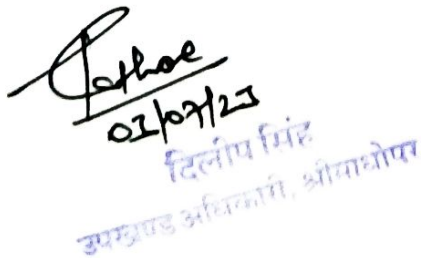 03/07/23
दिलीप सिंह
उपखण्ड अधिकारी, श्रीमाधोपुर